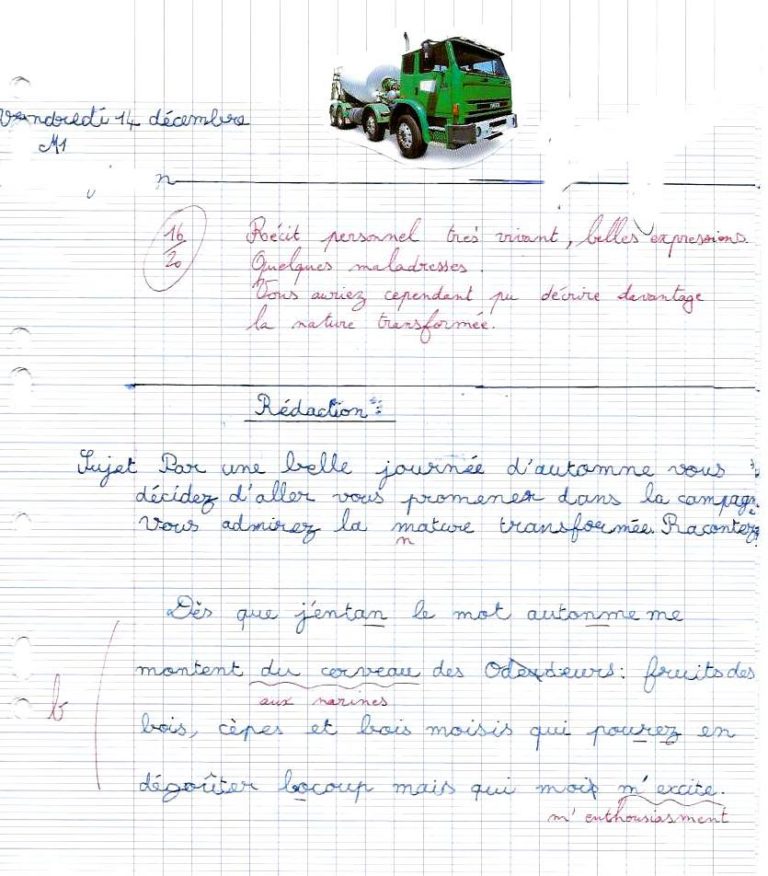 Vendredi 14 décembre
M1
16
20
Récit personnel très vivant, belles expressions.
Quelques maladresses.
Vous auriez cependant pu décrire davantage
la nature transformée.
Rédaction :
Sujet Par une belle journée d'automne vous
décidez d'aller vous promener dans la campagn
vous admirez la mature transformée. Racontez
n
Dès que j'entan le mot autonme me
montent du cerveau des Odeurs : fruits des
aux narines
b
bois, cèpes et bois moisis qui pourez en
dégoûter bocoup mais qui moi m'excite.
m'enthousiasment